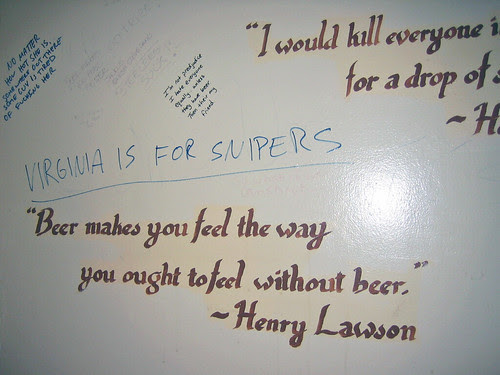 NO MATTER
HOW HOT SHE IS,
SOMEWHERE OUT THERE
SOME GUY IS TIRED
OF FUCKING HER
I'm not prejudice
I hate everyone
Equally unless
they had beer
Then their my
friend
"I would kill everyone i
for a drop of
~ H
VIRGINIA IS FOR SNIPERS
"Beer makes you feel the way
you ought to feel without beer."
~Henry Lawson